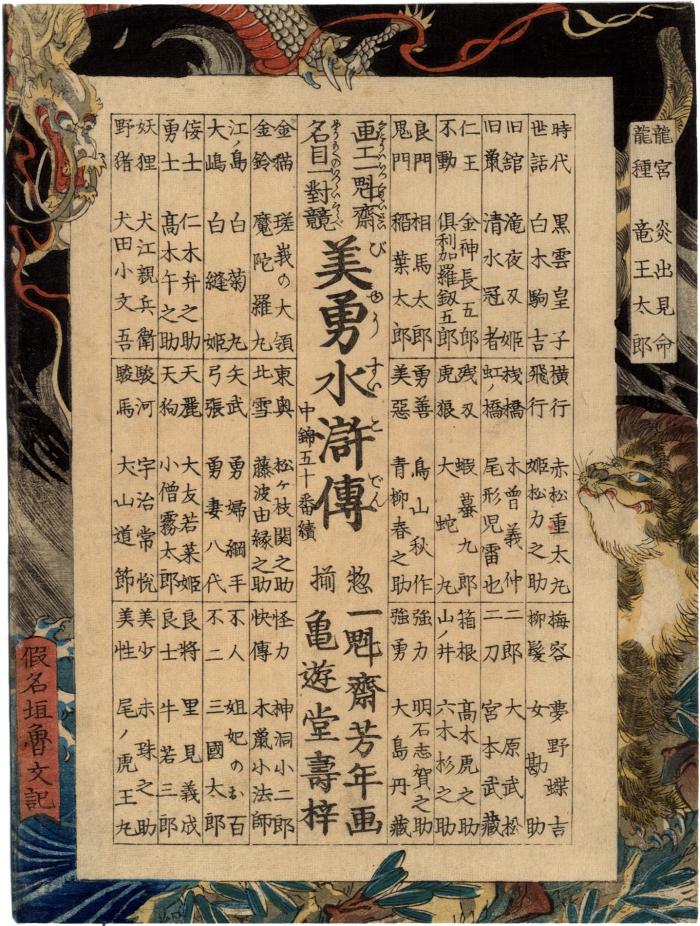 龍宮 炎出見命
龍種 竜王太郎
時代 黒雲皇子
世話 白木駒吉
旧舘 滝夜叉姫
旧巣 清水冠者
仁王 金神長五郎
不動 倶利加羅釼五郎
良門 相馬太郎
鬼門 稲葉太郎
横行 赤松重太丸
飛行 姫松力之助
桟橋 木曽義仲
虹ノ橋 尾形児雷也
残刄 蝦蟇九郎
虎狼 大蛇丸
勇善 鳥山秋作
美惡 青柳春之助
梅容 夢野蝶吉
柳髪 女勘助
二郎 大原武松
二刀 宮本武藏
箱根 高木虎之助
山ノ井 六本杉之助
強力 明石志賀之助
強勇 大島丹藏
画工一魁齋
名目一對競
美勇水滸傳
びゆうすいこでん
中錦五十番續
惣揃
一魁齋芳年画
亀遊堂壽梓
金猫 瑳峩の大領
金鈴 魔陀羅丸
江ノ島 白菊丸
大嶋 白縫姫
侫士 仁木弁之助
勇士 高木午之助
妖狸 犬江親兵衛
野猪 犬田小文吾
東奥 松ヶ枝関之助
北雪 藤波由縁之助
矢武 勇婦綱手
弓張 勇妻八代
天麗 大友若菜姫
天狗 小僧霧太郎
駿河 宇治常悦
駿馬 犬山道節
怪力 神洞小二郎
快傳 木巣小法師
不人 姐妃のお百
不二 三國太郎
良将 里見義成
良士 牛若三郎
美少 赤珠之助
美性 尾ノ虎王丸
假名垣魯文記